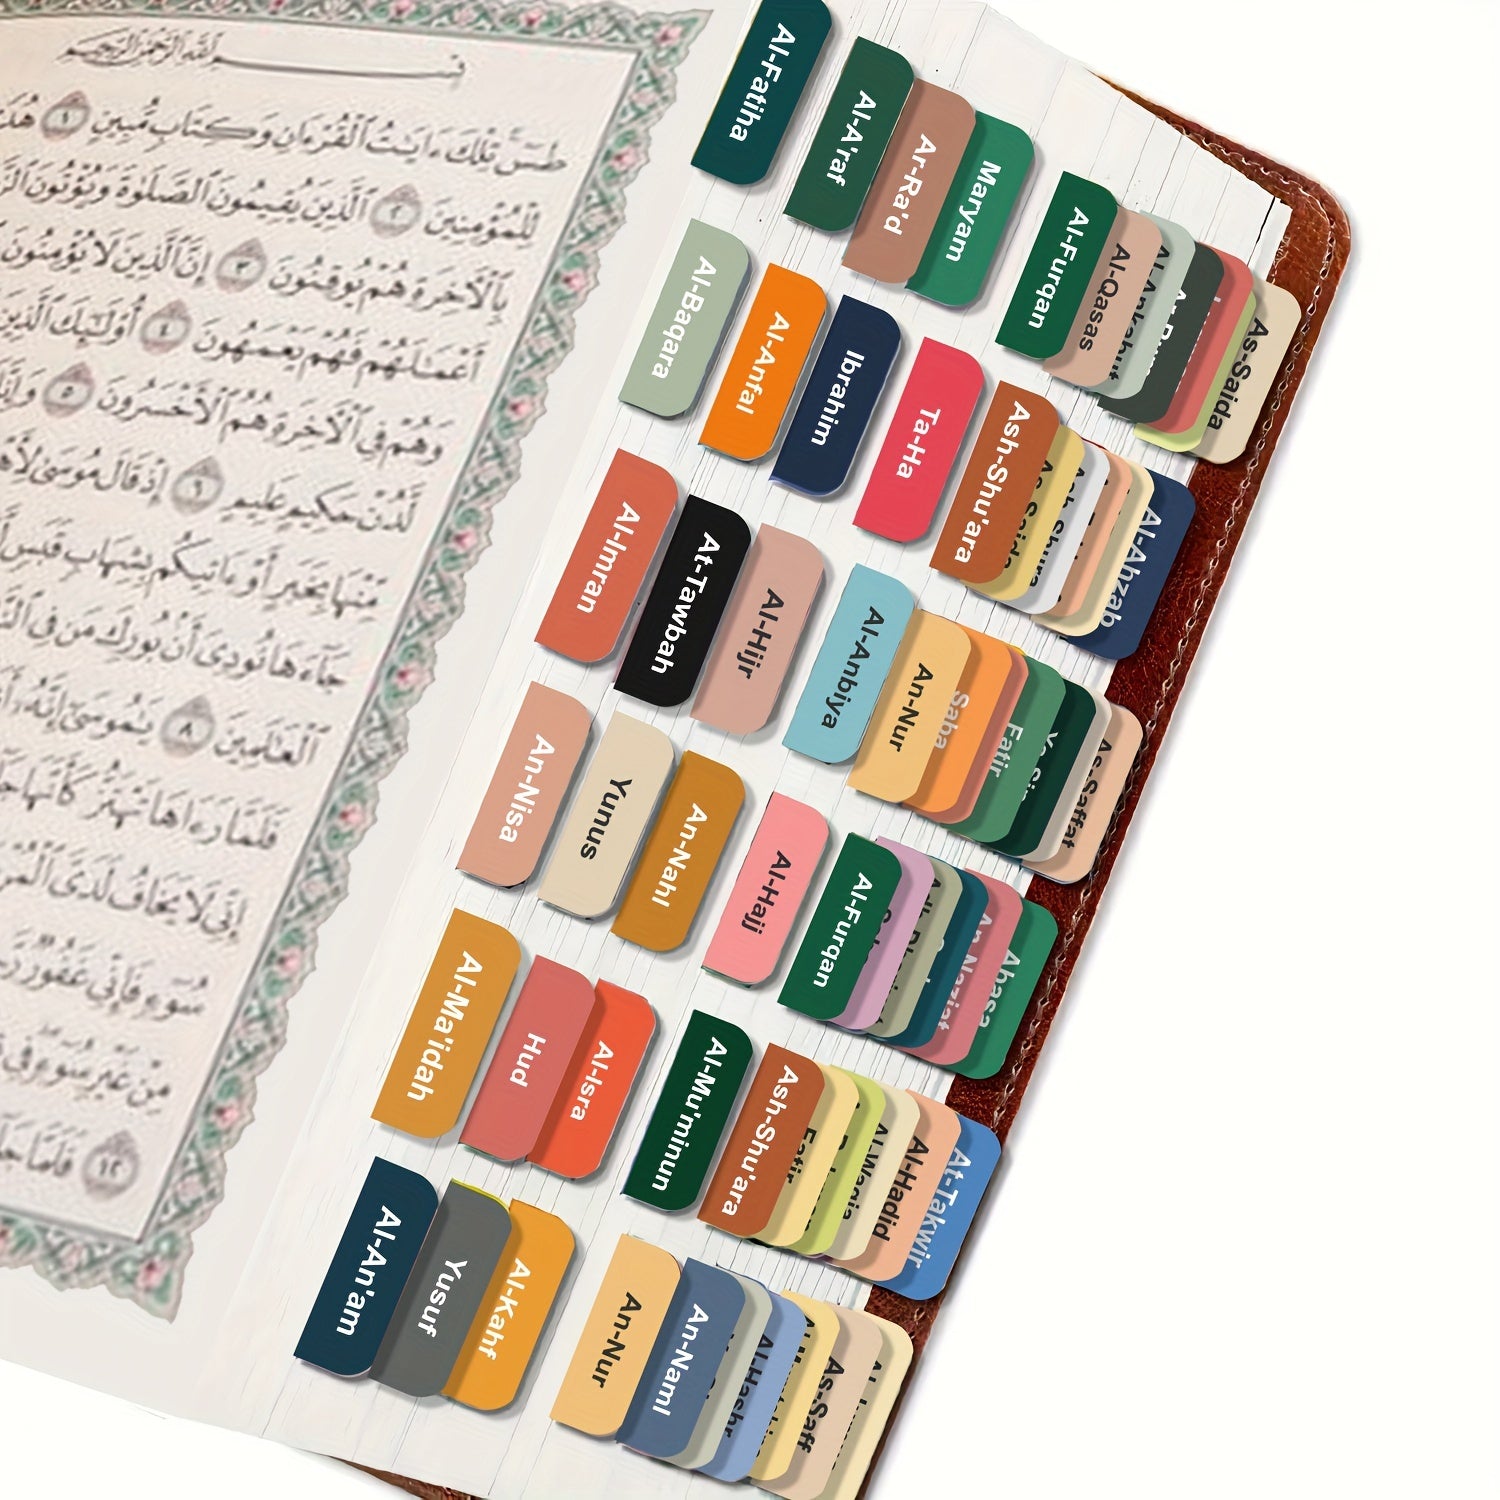 بِسْمِ ٱللَّهِ ٱلرَّحْمَٰنِ ٱلرَّحِيمِ
طسٓ تِلْكَ ءَايَٰتُ ٱلْقُرْءَانِ وَكِتَابٍ مُّبِينٍ ١ هُدًى
لِلْمُؤْمِنِينَ ٢ ٱلَّذِينَ يُقِيمُونَ ٱلصَّلَوٰةَ وَيُؤْتُونَ
بِٱلْأَخِرَةِ هُمْ يُوقِنُونَ ٣ إِنَّ ٱلَّذِينَ لَا يُؤْمِنُونَ
أَعْمَٰلَهُمْ فَهُمْ يَعْمَهُونَ ٤ أُوْلَٰٓئِكَ ٱلَّذِينَ
وَهُمْ فِى ٱلْأَخِرَةِ هُمُ ٱلْأَخْسَرُونَ ٥ وَإِنَّكَ
لَّدُنْ حَكِيمٍ عَلِيمٍ ٦ إِذْ قَالَ مُوسَىٰ لِأَهْلِهِ
مِّنْهَا بِخَبَرٍ أَوْ ءَاتِيكُم بِشِهَابٍ قَبَسٍ
جَآءَهَا نُودِىَ أَنۢ بُورِكَ مَن فِى ٱلنَّارِ
ٱلْعَٰلَمِينَ ٨ يَٰمُوسَىٰٓ إِنَّهُۥٓ أَنَا
فَلَمَّا رَءَاهَا تَهْتَزُّ كَأَنَّهَا
إِنِّى لَا يَخَافُ لَدَىَّ
سُوٓءٍ فَإِنِّى غَفُورٌ
مِنْ غَيْرِ سُوٓءٍ فِى
١٢ فَلَمَّا
Al-Fatiha
Al-A'raf
Ar-Ra'd
Maryam
Al-Furqan
Al-Qasas
Al-Ankabut
As-Sajda
Al-Baqara
Al-Anfal
Ibrahim
Ta-Ha
Ash-Shu'ara
Al-Ahzab
Al-Imran
At-Tawbah
Al-Hijr
Al-Anbiya
An-Nur
Saba
Fatir
As-Saffat
An-Nisa
Yunus
An-Nahl
Al-Hajj
Al-Furqan
Abasa
Al-Ma'idah
Hud
Al-Isra
Al-Mu'minun
Ash-Shu'ara
Fatir
Al-Hadid
At-Takwir
Al-An'am
Yusuf
Al-Kahf
An-Nur
An-Naml
Al-Hashr
As-Saff